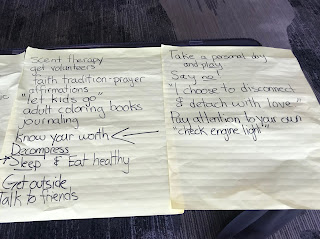 Scent therapy
get volunteers
faith tradition-prayer
affirmations
"let kids go"
adult coloring books
journaling
Know your worth
Decompress
Sleep & Eat healthy
Get outside
Talk to friends
Take a personal day
and play
Say no!
"I choose to disconnect
& detach with love"
Pay attention to your own
"check engine light"